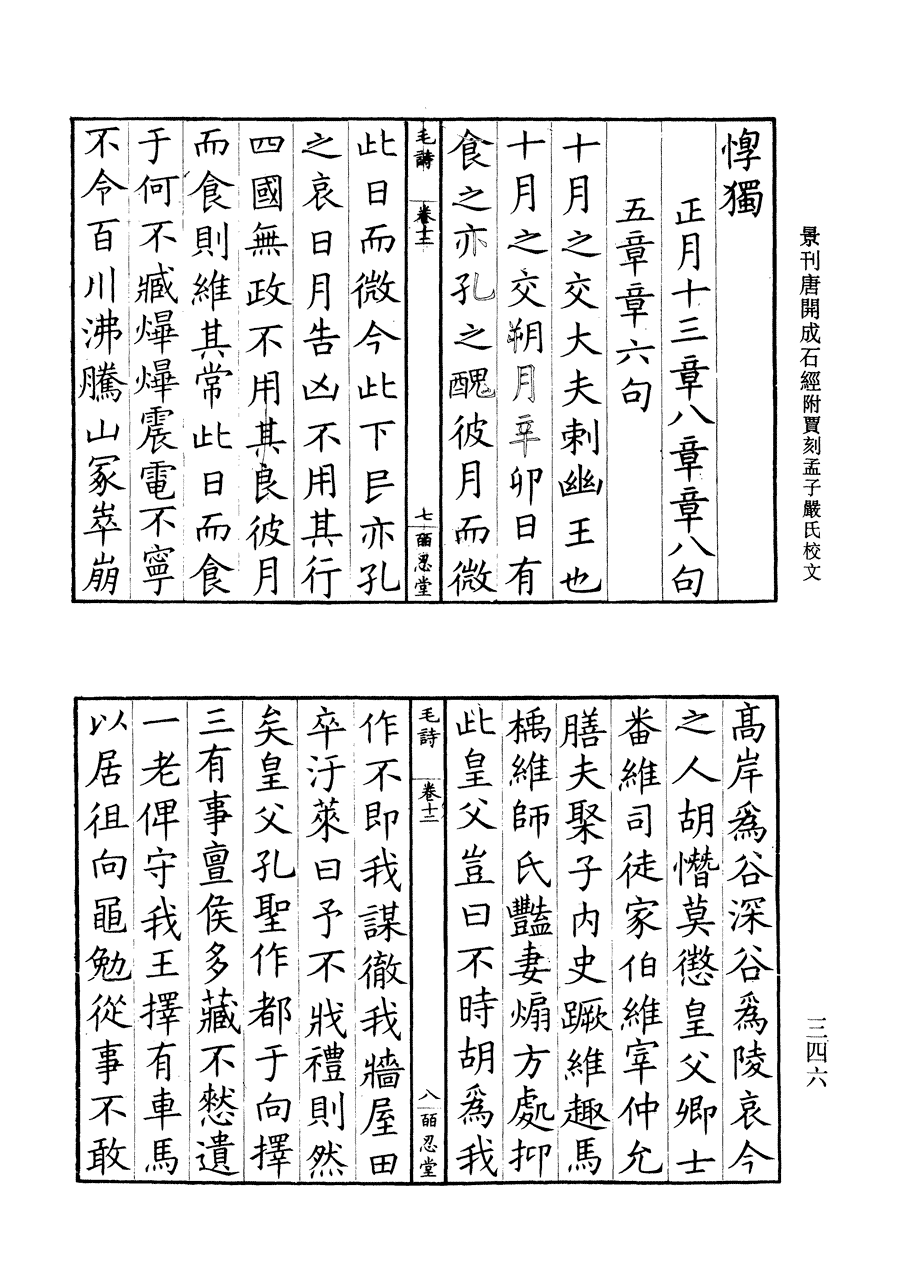 景刊唐開成石經附賈刻孟子嚴氏校文
惸獨
正月十三章八章章八句
五章章六句
十月之交大夫刺幽王也
十月之交朔月辛卯日有
食之亦孔之醜彼月而微
毛詩 卷十二 七 皕忍堂
此日而微今此下民亦孔
之哀日月告凶不用其行
四國無政不用其良彼月
而食則維其常此日而食
于何不臧爗爗震電不寧
不令百川沸騰山冢崒崩
高岸爲谷深谷爲陵哀今
之人胡憯莫懲皇父卿士
番維司徒家伯維宰仲允
膳夫棸子内史蹶維趣馬
楀維師氏豔妻煽方處抑
此皇父豈曰不時胡爲我
毛詩 卷十二 八 皕忍堂
作不即我謀徹我牆屋田
卒汙萊曰予不戕禮則然
矣皇父孔聖作都于向擇
三有事亶侯多藏不憖遺
一老俾守我王擇有車馬
以居徂向黽勉從事不敢
三四六